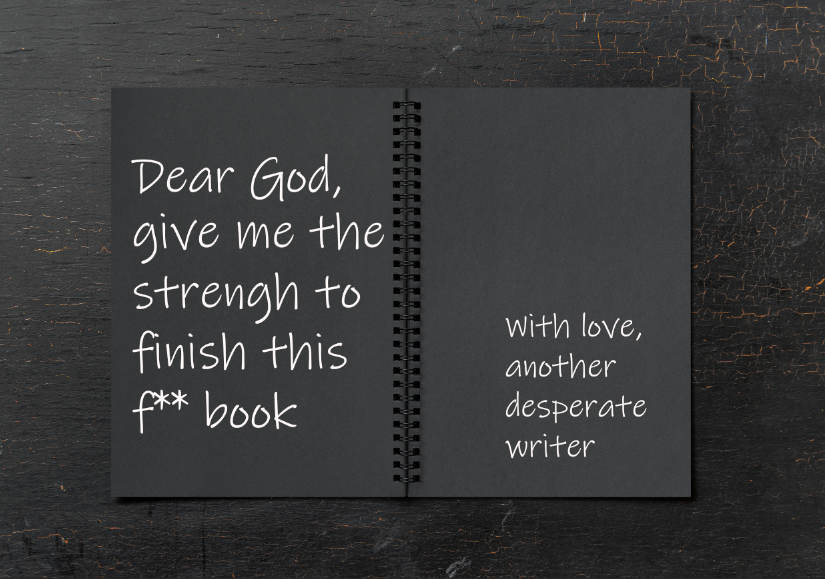 Dear God,
give me the
strengh to
finish this
f** book
With love,
another
desperate
writer